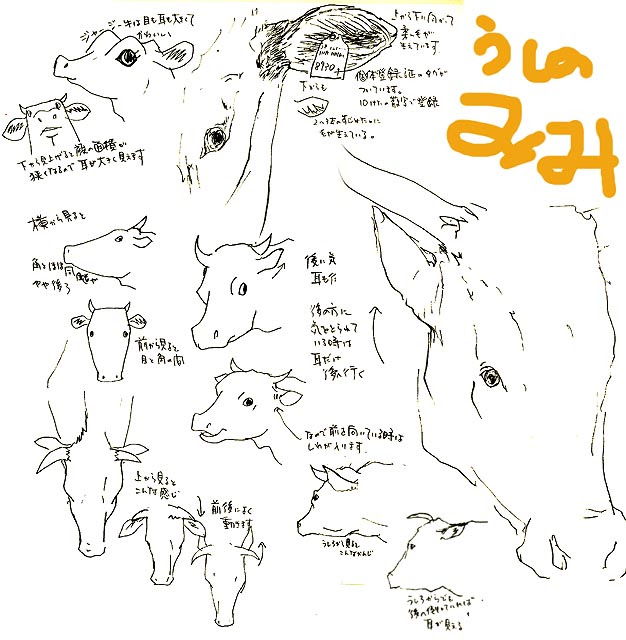 うしの
みみ
ジャージー牛は目も耳も大きくて
かわいい
上から下に向かって
生えています
8930
個体登録証のタグが
ついています。
10けたの数字で登録
下からも
毛が生えている。
下から見上げると顔の面積が
狭くなるので耳が大きく見えます
横から見ると
角とほぼ同
やや後ろ
前から見ると
目と角の間
後に気
耳も
後の方に
気をとられて
いる時は
耳だけ
後へ行く
なので前を向いている時は
しわが入ります。
上から見ると
こんな感じ
前後によく
動きます
うしろから見ると
こんなかんじ
うしろからでも
耳が見える